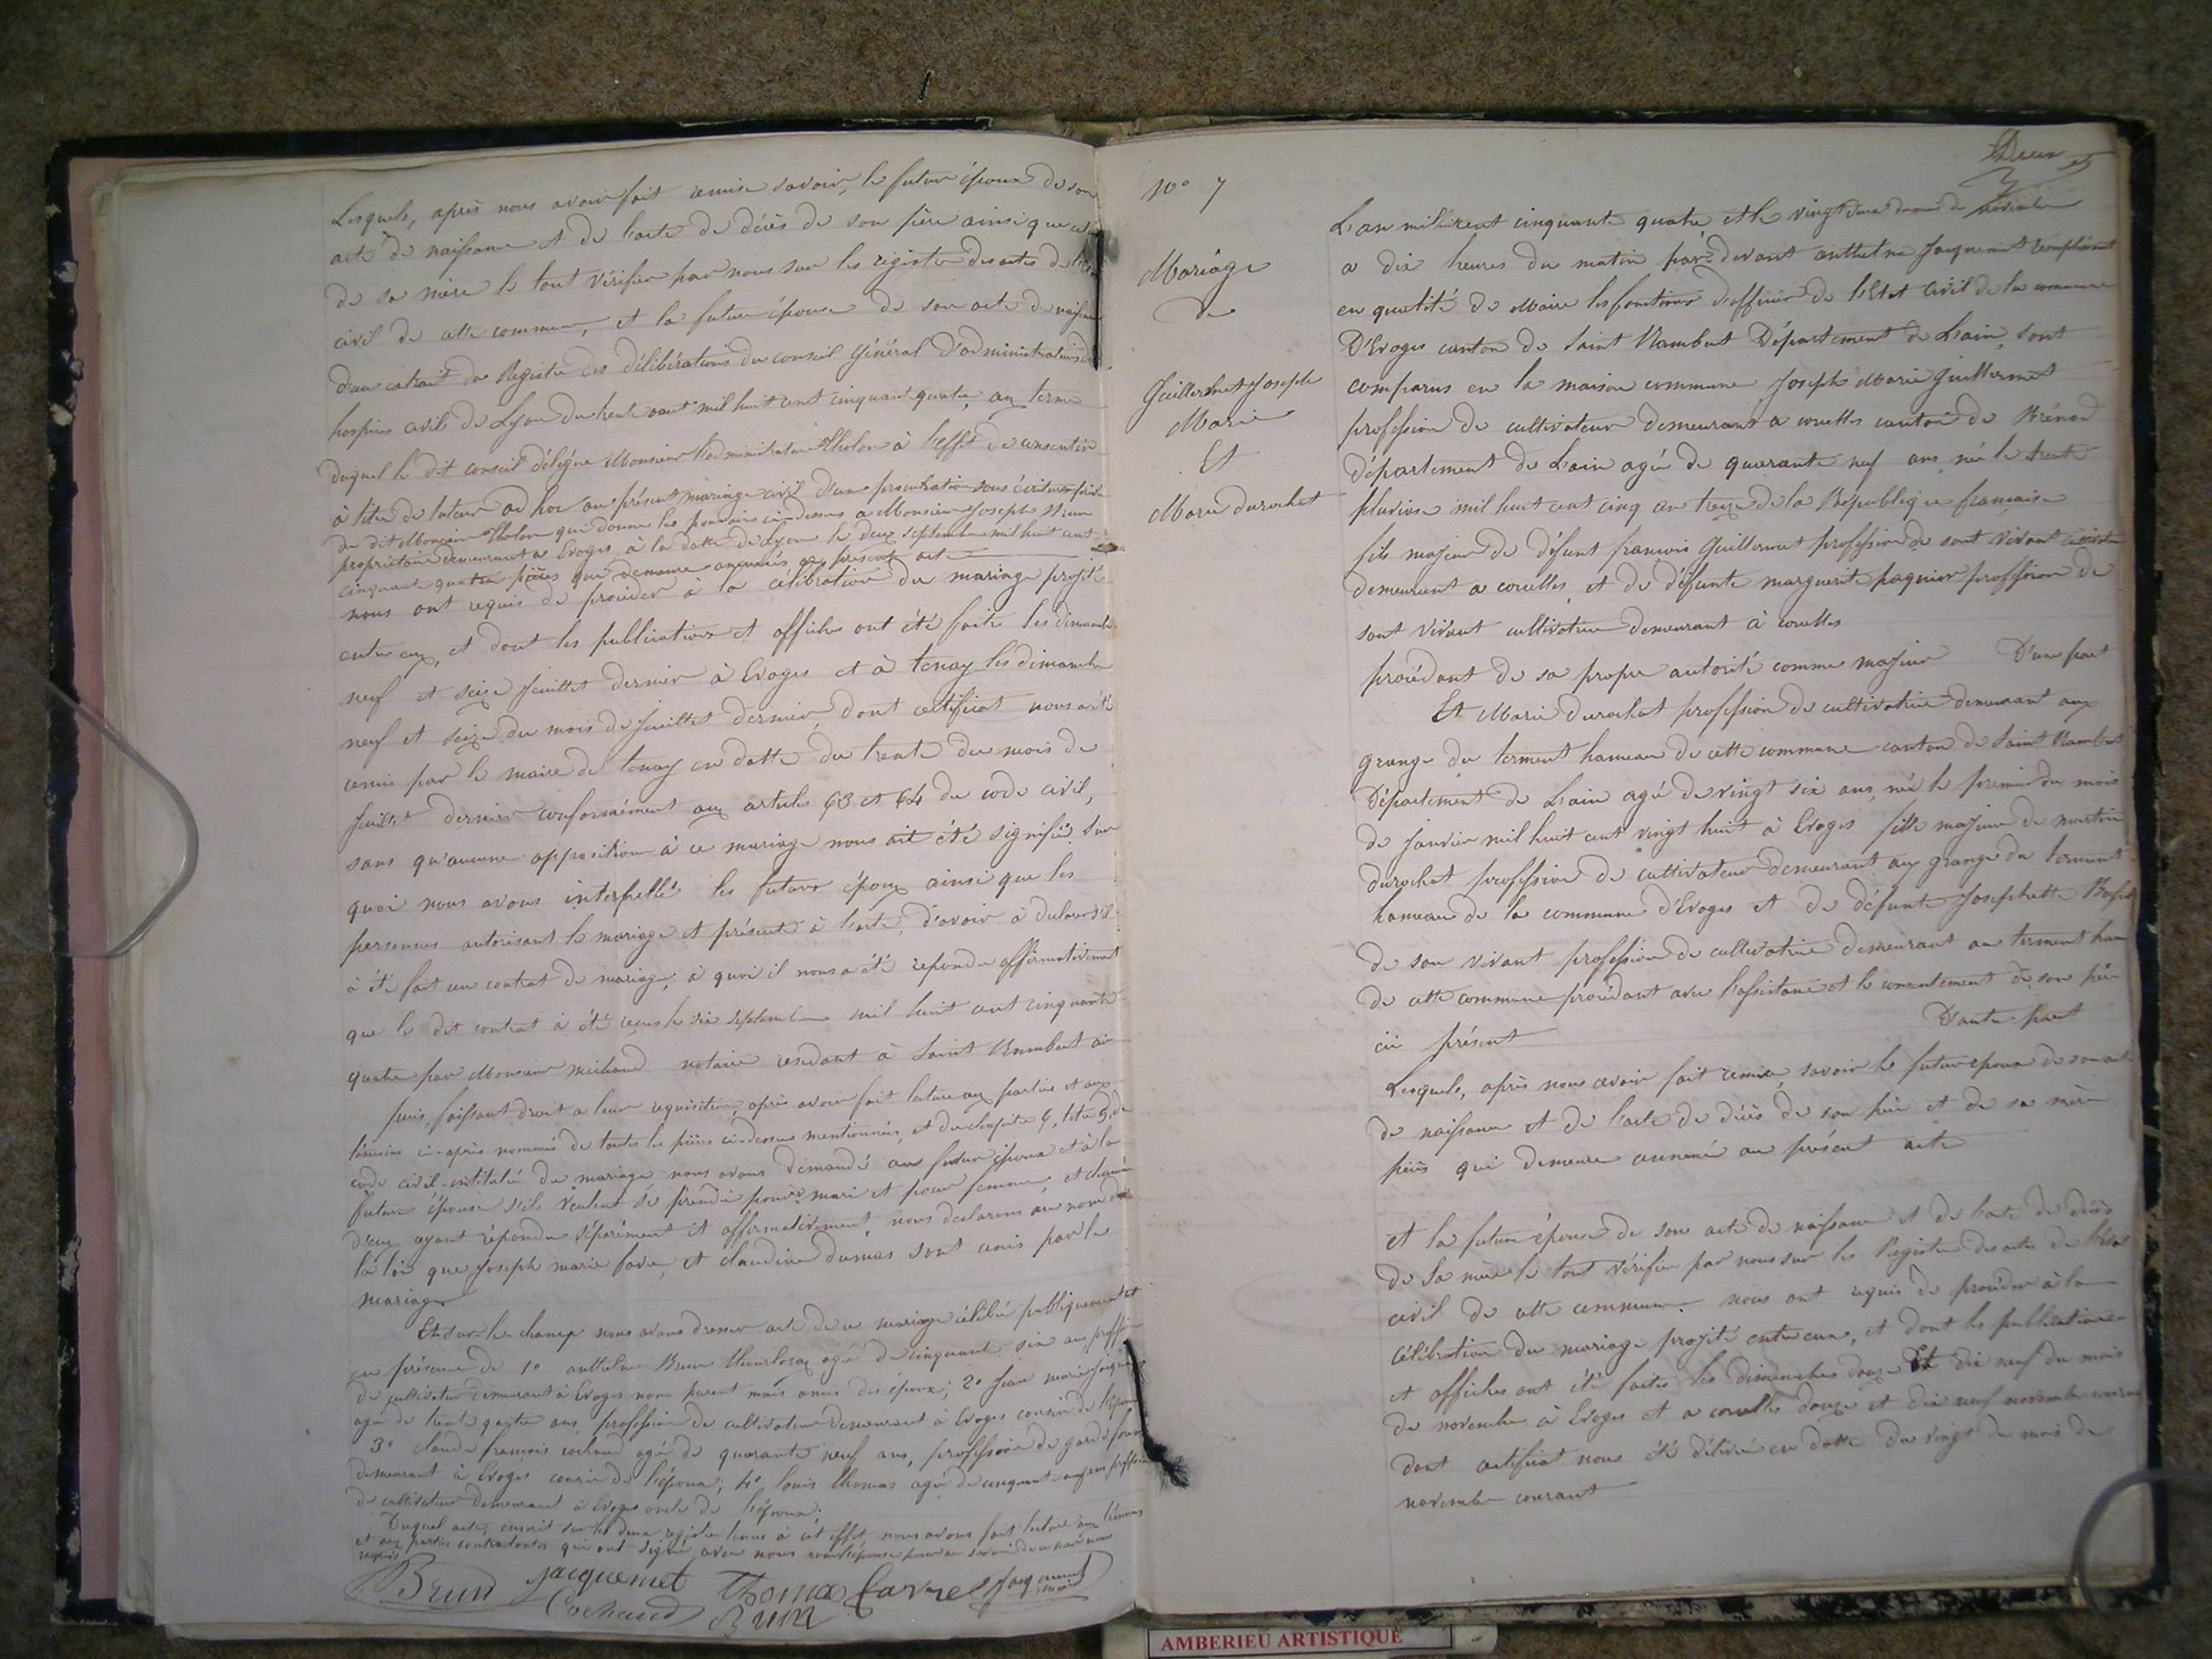 Lesquels, après nous avoir fait remise savoir, le futur époux de son
acte de naissance et de l'acte de décès de son père ainsi que
de sa mère le tout vérifier par nous sur les registre des actes de
civil de cette commune, et la future épouse de son acte de
d'un extrait du Registre des délibérations du conseil Général d'administration
hospices civils de Lyon du trente août mil huit cent cinquante quatre, au terme
duquel le dit conseil délégue Monsieur l'administrateur à l'effet de consentir
à titre de tuteur ad hoc au présent mariage civil d'une procuration sous écriture privée
du dit Monsieur qui donne les pouvoirs ci dessus a Monsieur Joseph Brun
propriétaire demeurant a Evoges à la date de Lyon le deux septembre mil huit cent
cinquante quatre pièces qui demeure annexés au présent acte
nous ont requis de procéder à la célébration du mariage projeté
entre eux, et dont les publications et affiches ont été faite les dimanche
neuf et seize Juillet dernier à Evoges et à tenay les dimanche
neuf et seize du mois de Juillet dernier, dont certificat nous a été
remis par le maire de tenay en datte du trente du mois de
Juillet dernier conformément aux articles 63 et 64 du code civil,
sans qu'aucune opposition à ce mariage nous ait été signifiée. Sur
quoi nous avons interpellé les futurs époux ainsi que les
personnes autorisant le mariage et présente à l'acte, d'avoir à déclarer s'il
à été fait un contrat de mariage, à quoi il nous a été repondu affirmativement
que le dit contrat à été reçus le six septembre mil huit cent cinquante
quatre par Monsieur michaud notaire résidant à Saint Rambert
puis, faissant droit a leur requisition, après avoir fait lecture aux parties et aux
témoins ci-après nommés de toutes les pièces ci-dessus mentionnées, et du chapitre 6, titre 5, du
code civil, intitulé du mariage nous avons demandé au futur époux et à la
future épouse s'ils veulent se prendre pour mari et pour femme, et chacun
d'eux ayant répondu séparément et affirmativement, nous declarons au nom de
la loi que Joseph marie favre, et claudine dumas sont unis par le
mariage
Et sur-le-champ nous avons dresser acte de ce mariage célébré publiquement et
en présence de 1o anthelme Brun agé de cinquante six ans profession
de cultivateur demeurant à Evoges non parent mais amis des époux; 2o Jean marie Jacquemet
agé de trente quatre ans, profession de cultivateur demeurant à Evoges cousin de l'époux
3o claude françois cochaud agé de quarante neuf ans, profession de garde
demeurant à Evoges cousin de l'époux; 4o louis thomas agé de cinquante ans profession
de cultivateur demeurant à Evoges oncle de l'époux;
Duquel acte, inscrit sur les deux registre tenus à cet effet nous avons fait lecture aux témoins
et aux parties contractantes qui ont signé avec nous non l'épouse pour ne savoir de ce
requis
Brun Jacquemet Thomas favre Jacquemet
Cochaud Brun maire
No 7
Mariage
De
Guillermet Joseph
Marie
Et
Marie durochat
L'an mil huit cent cinquante quatre et le vingt du mois de novembre
a dix heures du matin par devant anthelme Jacquemet remplissant
en qualité de Maire les fonctions d'officier de l'Etat civil de la commune
D'Evoges canton de Saint Rambert Département de L'ain, sont
comparus en la maison commune, Joseph Marie Guillermet
profession de cultivateur demeurant a corcelles canton de Brénod
département de L'ain agé de quarante neuf ans, né le trente
pluviose mil huit cent cinq an treize de la République française
fils majeur de défunt francois Guillermet profession de sont vivant cultivateur
demeurant a corcelles, et de défunte marguerite paquier profession de
sont vivant cultivatrice demeurant à corcelles
procédant de sa propre autorité comme majeur D'une part
Et Marie durochat profession de cultivatrice demeurant aux
grange du terment hameau de cette commune canton de Saint Rambert
Département de L'ain agé de vingt six ans, né le premier du mois
de Janvier mil huit cent vingt huit à Evoges fille majeure de martin
durochat profession de cultivateur demeurant aux grange du terment
hameau de la commune d'Evoges et de défunte Josephette
de son vivant profession de cultivatrice demeurant au terment ham
de cette commune procédant avec l'assistance et le consentement de son père
ici présent D'autre part
Lesquels, après nous avoir fait remise, savoir le futur époux de son acte
de naissance et de l'acte de décès de son père et de sa mère
pièces qui demeure annexé au présent acte
et la future épouse de son acte de naissance et de l'acte de décès
de sa mère le tout vérifier par nous sur les Registre des actes de l'Etat
civil de cette commune. nous ont requis de procéder à la
célébration du mariage projeté entre eux, et dont les publications
et affiches ont été faites les dimanches douze Et dix neuf du mois
de novembre à Evoges et a corcelles douze et dix neuf novembre courant
dont certificat nous été délivré en datte du vingt du mois de
novembre courant
AMBERIEU ARTISTIQUE